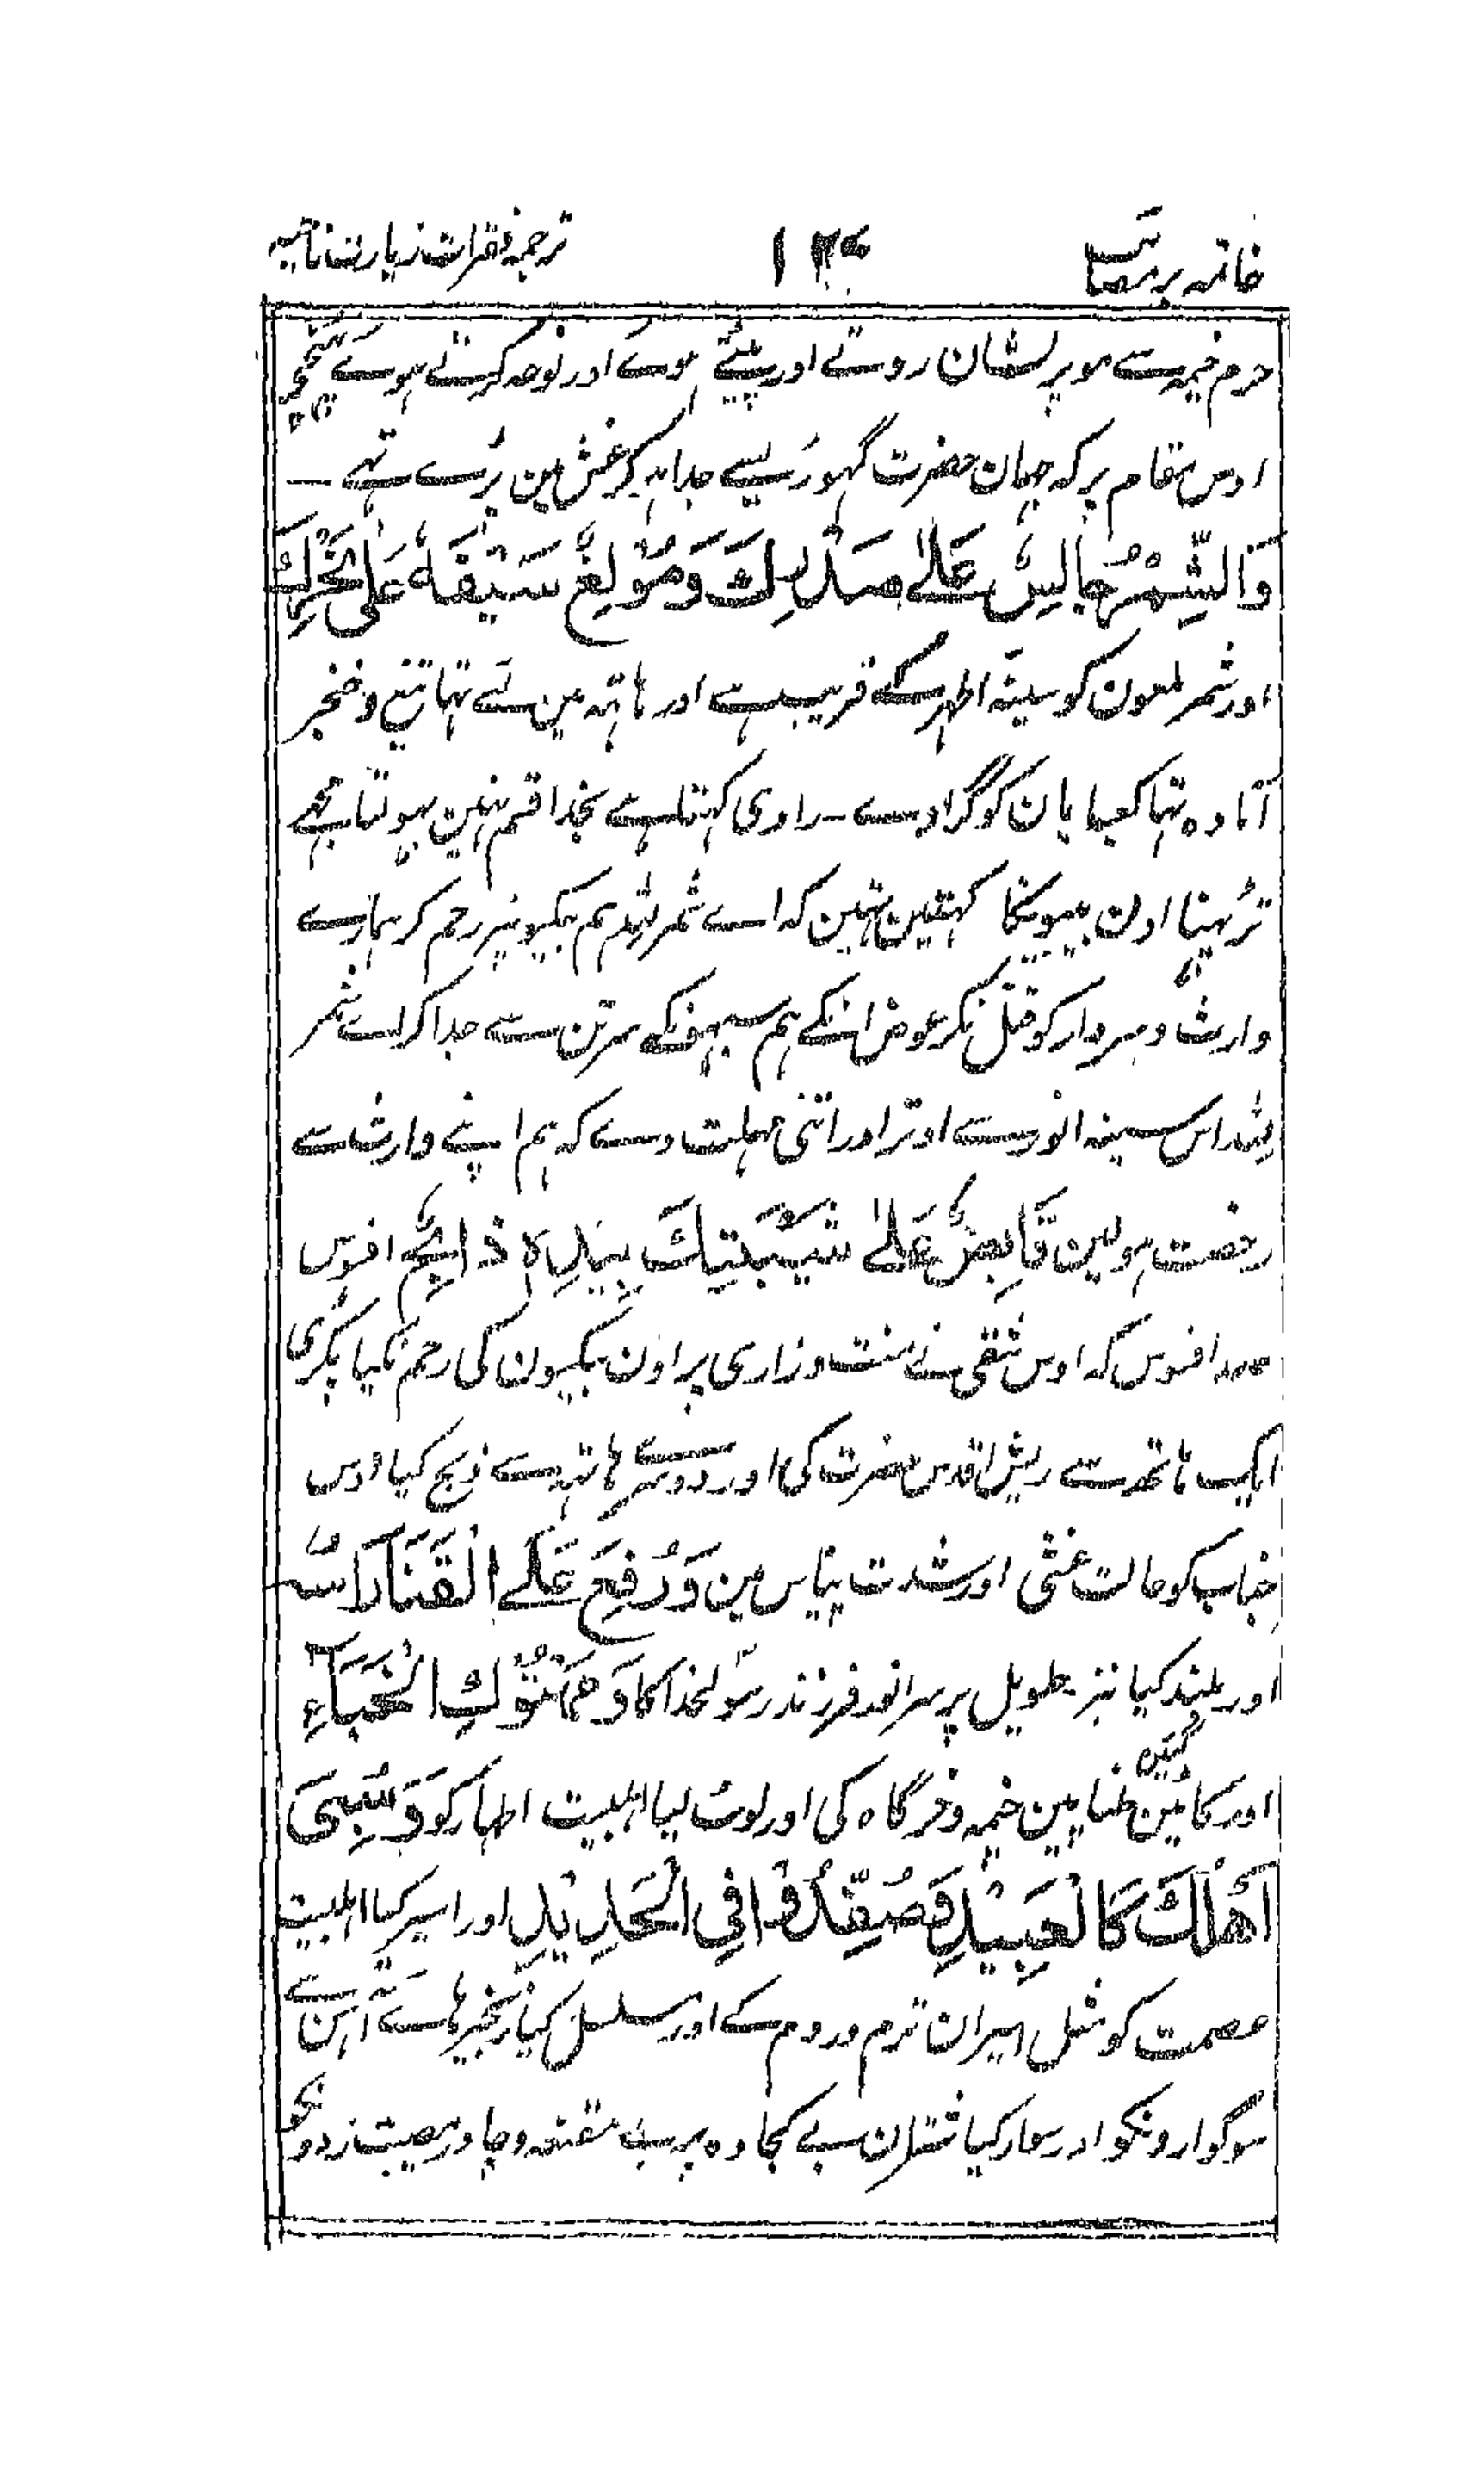 خاتمہ بر مصائب ۱۳۰ ترجمہ فقرات زیارت ناحیہ
حرم خیمہ سے مو پریشان روتے اور پیٹتے ہوے اور نوحہ کرتے ہوے پہنچے
اوس مقام پر کہ جہان حضرت گہوڑیسے جدا ہو کر غش مین پڑے تہے ۔
وَالشِّمْرُ جَالِسٌ عَلٰے صَدْرِكَ وَمُوْلِغٌ سَيْفَهٗ عَلٰى نَحْرِكَ
اور شمر ملعون کو سینۂ اطہر کے قریب ہے اور ہاتہ مین لئے تہا تیغ و خنجر
آمادہ تہا کعبۂ کو گرادے ۔ راوی کہتا ہے بخدا قسم نہین بہولتا مجہے
تڑپنا اون بیبیونکا کہتین تہین کہ اے شمر للہ ہم بیکسونپر رحم کر ہمارے
وارث و سردار کو قتل نکر عوض انکے ہم سبہونکے سر تن سے جدا کر اے شمر
للہ اس سینہ انور سے اوتر اور اتنی مہلت دے کہ ہم اپنے وارث سے
رخصت ہولین قَابِضٌ عَلٰے شَيْبَتِكَ بِيَدِهٖ ذَابِحٌ افسوس
صد افسوس کہ اوس شقی نے منت و زاری پر اون بیکسون کی رحم نکیا پکڑی
ایک ہاتھ سے ریش اقدس حضرت کی اور دوسرے ہاتہ سے ذبح کیا اوس
جناب کو حالت غشی اور شدت پیاس مین وَرُفِعَ عَلَے الْقَنَا رَأسُ
اور بلند کیا نیزۂ طویل پر سر انور فرزند رسولخدا کا وَهُتِكَ الْخِبَآءِ
اور کاٹین گئین طنابین خیمہ و خرگاہ کی اور لوٹ لیا اہلبیت اطہار کو وَسُبِیَ
اَهْلُكَ كَالْعَبِيْدِ وَصُفِّدُوْا فِي الْحَدِيْدِ اور اسیر کیا اہلبیت
عصمت کو مثل اسیران ترم و روم کے اور مسلسل کیا زنجیر ہاے آہن سے
سوگوارونکو اور سوار کیا شتران بے کجاوہ پر بے مقنعہ و چادر مصیبت زدونکو